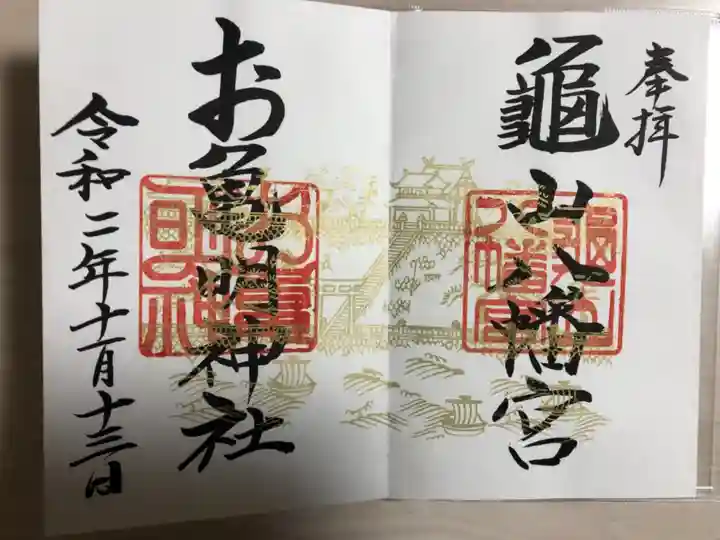 奉拝
龜山八幡宮
お亀明神社
令和二年十一月十三日